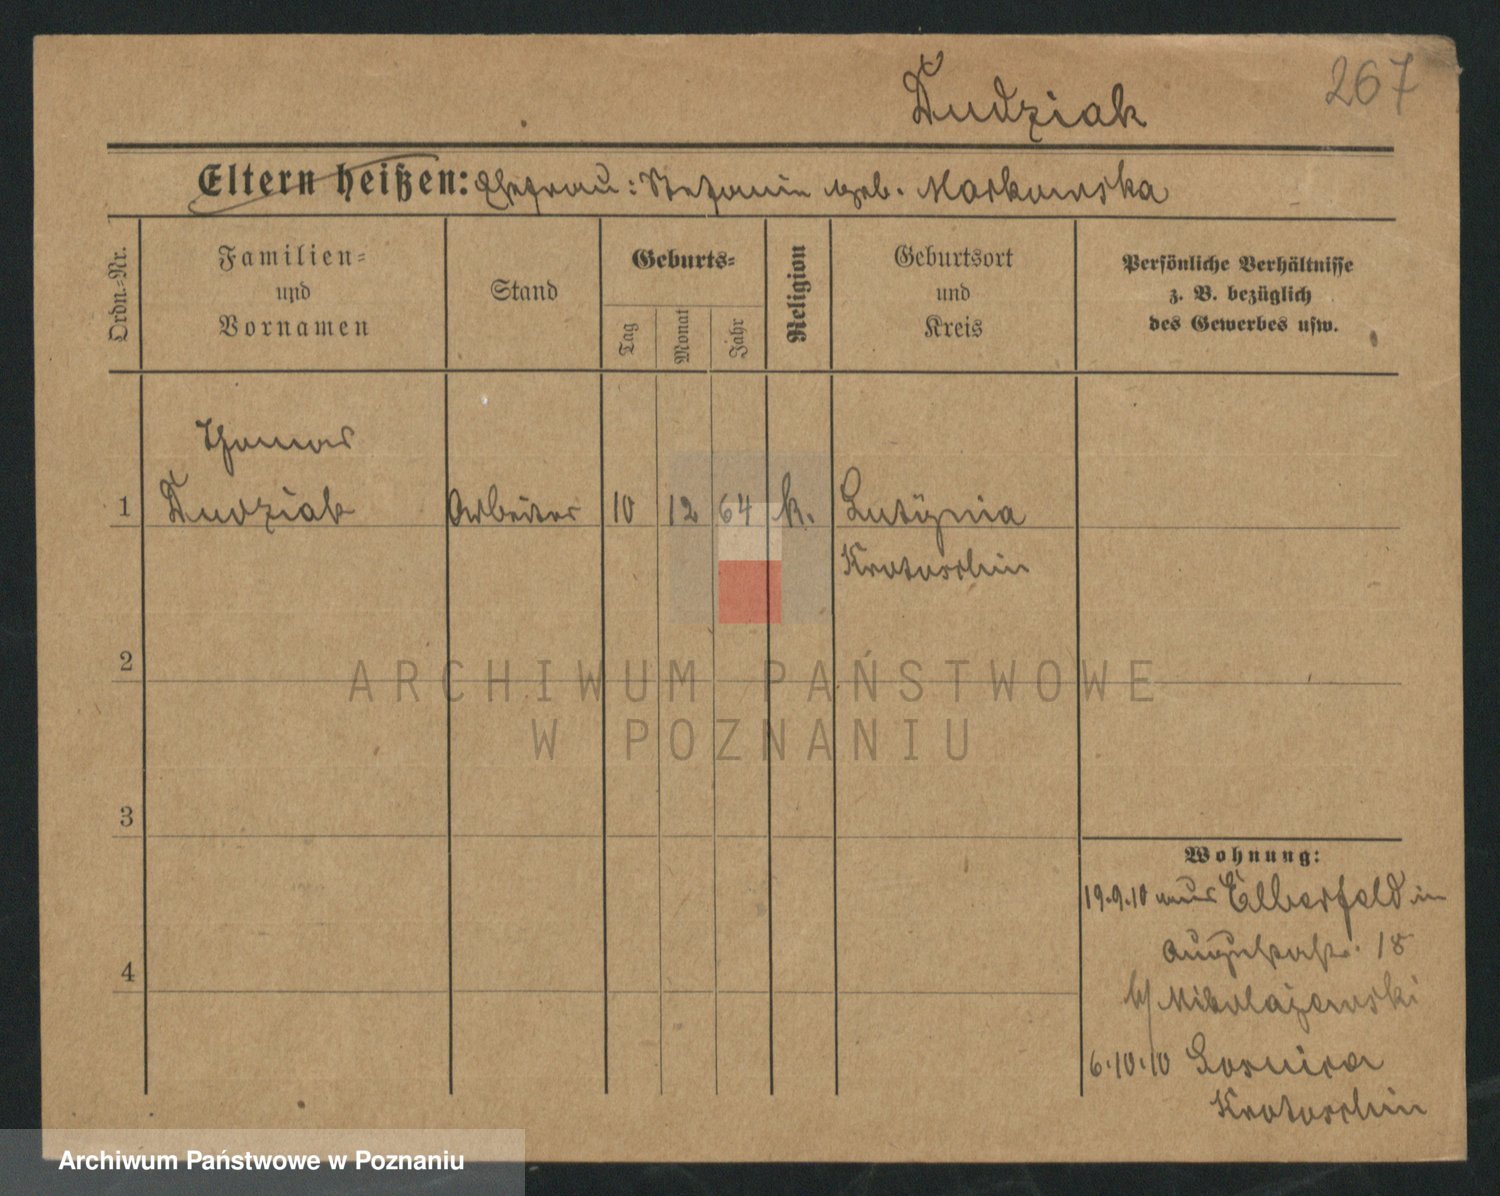 267
Dudziak
Eltern heißen: Ehefrau: Stefanie geb. Markowska
Ordn.-Nr.
Familien-
und
Vornamen
Stand
Geburts-
Tag
Monat
Jahr
Religion
Geburtsort
und
Kreis
Persönliche Verhältnisse
z. B. bezüglich
des Gewerbes usw.
Thomas
1 Dudziak Arbeiter 10 12 64 k. Lutynia
Krotoschin
2
ARCHIWUM PAŃSTWOWE
W POZNANIU
3
Wohnung:
19.9.10 aus Elberfeld in
Augustastr. 18
b/ Mikolajewski
4
6.10.10
Krotoschin
Archiwum Państwowe w Poznaniu